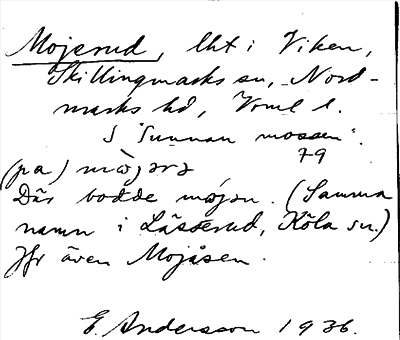 Mojerud, lht i Viken,
Skillingmarks sn, Nord-
marks hd, Vrml l.
S "Sunnan mossen".
79
(pa) mὼjərə
Där bodde mojən. (Samma
namn i Lässerud, Köla sn.)
Jfr även Mojåsen.
E. Andersson 1936.